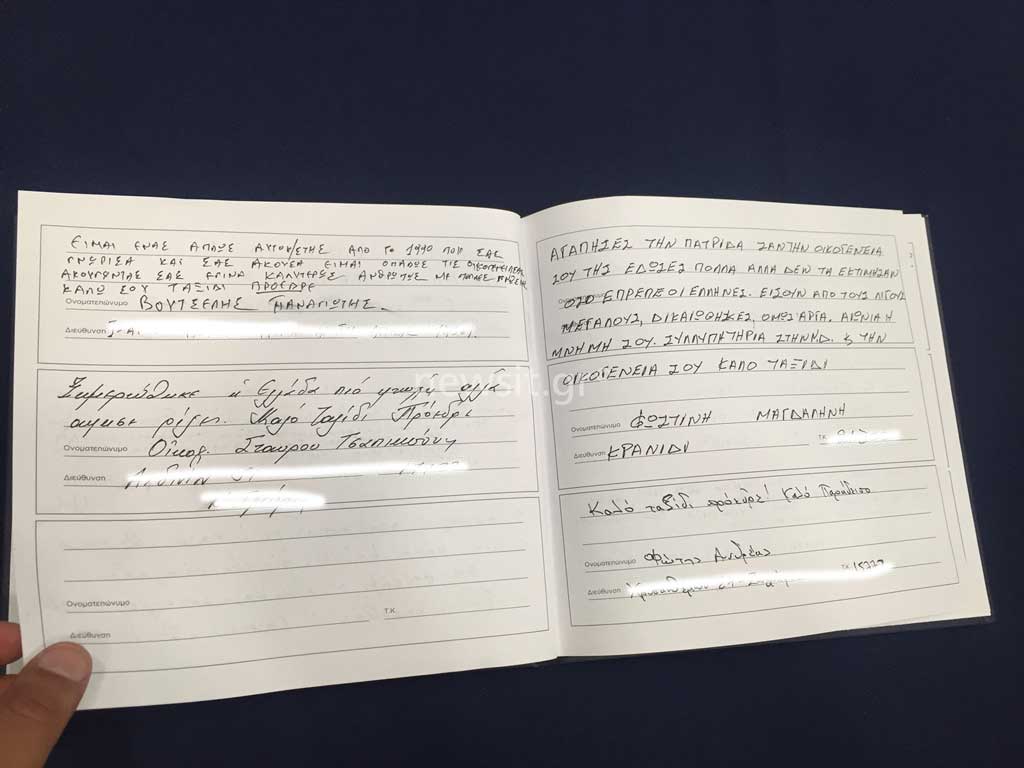 ΕΙΜΑΙ ΕΝΑΣ ΑΠΛΟΣ ΑΠΟ ΤΟ 1990 ΠΟΥ ΣΑΣ
ΓΝΩΡΙΣΑ ΚΑΙ ΣΑΣ ΑΚΟΥΣΑ ΕΙΜΑΙ ΟΠΑΔΟΣ ΤΙΣ
ΑΚΟΥΓΩΝΤΑΣ ΣΑΣ ΕΓΙΝΑ ΚΑΛΥΤΕΡΟΣ ΑΝΘΡΩΠΟΣ ΜΕ
ΚΑΛΟ ΣΟΥ ΤΑΞΙΔΙ ΠΡΟΕΔΡΕ
Ονοματεπώνυμο ΒΟΥΤΣΕΛΗΣ ΠΑΝΑΓΙΩΤΗΣ
Διεύθυνση
Ξημερώθηκε η Ελλάδα πιό φτωχή αλλά
ρίγος. Καλό Ταξίδι Πρόεδρε
Ονοματεπώνυμο Οίκογ. Σταύρου
Διεύθυνση
Ονοματεπώνυμο Τ.Κ.
Διεύθυνση
ΑΓΑΠΗΣΕΣ ΤΗΝ ΠΑΤΡΙΔΑ ΣΑΝ ΤΗΝ ΟΙΚΟΓΕΝΕΙΑ
ΣΟΥ ΤΗΣ ΕΔΩΣΕΣ ΠΟΛΛΑ ΑΛΛΑ ΔΕΝ ΤΑ ΕΚΤΙΜΗΣΑΝ
ΟΣΟ ΕΠΡΕΠΕ ΟΙ ΕΛΛΗΝΕΣ. ΕΙΣΟΥΝ ΑΠΟ ΤΟΥΣ ΛΙΓΟΥΣ
ΜΕΓΑΛΟΥΣ, ΔΙΚΑΙΩΘΗΚΕΣ, ΟΜΩΣ ΑΡΓΑ. ΑΙΩΝΙΑ Η
ΜΝΗΜΗ ΣΟΥ. ΣΥΛΛΥΠΗΤΗΡΙΑ ΣΤΗΝ ΝΔ. & ΤΗΝ
ΟΙΚΟΓΕΝΕΙΑ ΣΟΥ ΚΑΛΟ ΤΑΞΙΔΙ
Ονοματεπώνυμο ΦΩΣΤΙΝΗ ΜΑΓΔΑΛΗΝΗ
Διεύθυνση ΚΡΑΝΙΔΙ Τ.Κ.
Καλό ταξίδι πρόεδρε! Καλό Παράδεισο
Ονοματεπώνυμο Φώτης Ανδρέας
Διεύθυνση Τ.Κ.
newsit.gr